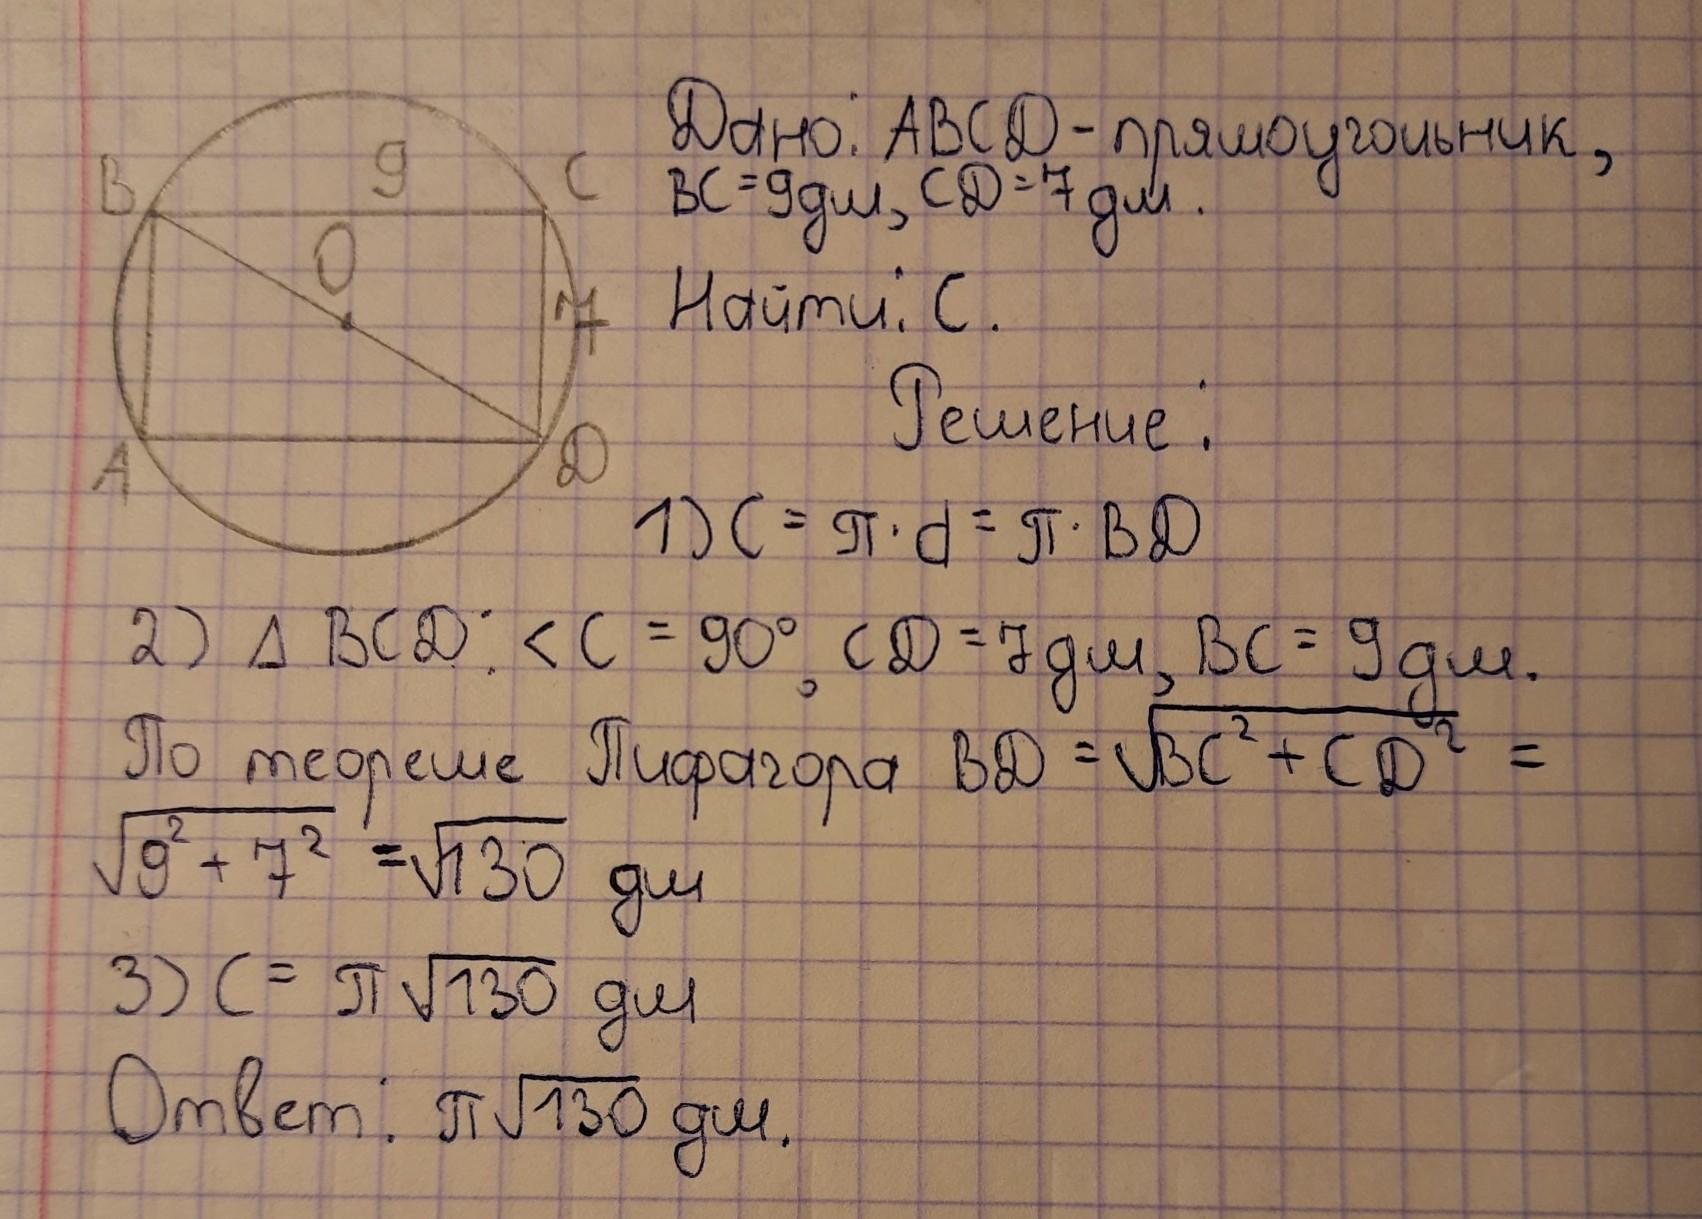 Дано: ABCD - прямоугольник,
BC = 9 дм, CD = 7 дм.
Найти: C.
Решение:
B
9
C
O
7
A
D
1) C = π · d = π · BD
2) Δ BCD: < C = 90°, CD = 7 дм, BC = 9 дм.
По теореме Пифагора BD = √BC² + CD² =
√9² + 7² = √130 дм
3) C = π √130 дм
Ответ: π √130 дм.